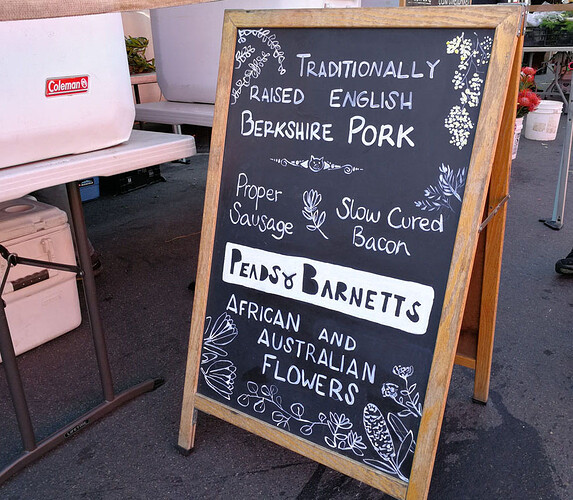 Coleman
TRADITIONALLY
RAISED ENGLISH
BERKSHIRE PORK
Proper
Sausage
Slow Cured
Bacon
PEADS & BARNETTS
AFRICAN AND
AUSTRALIAN
FLOWERS